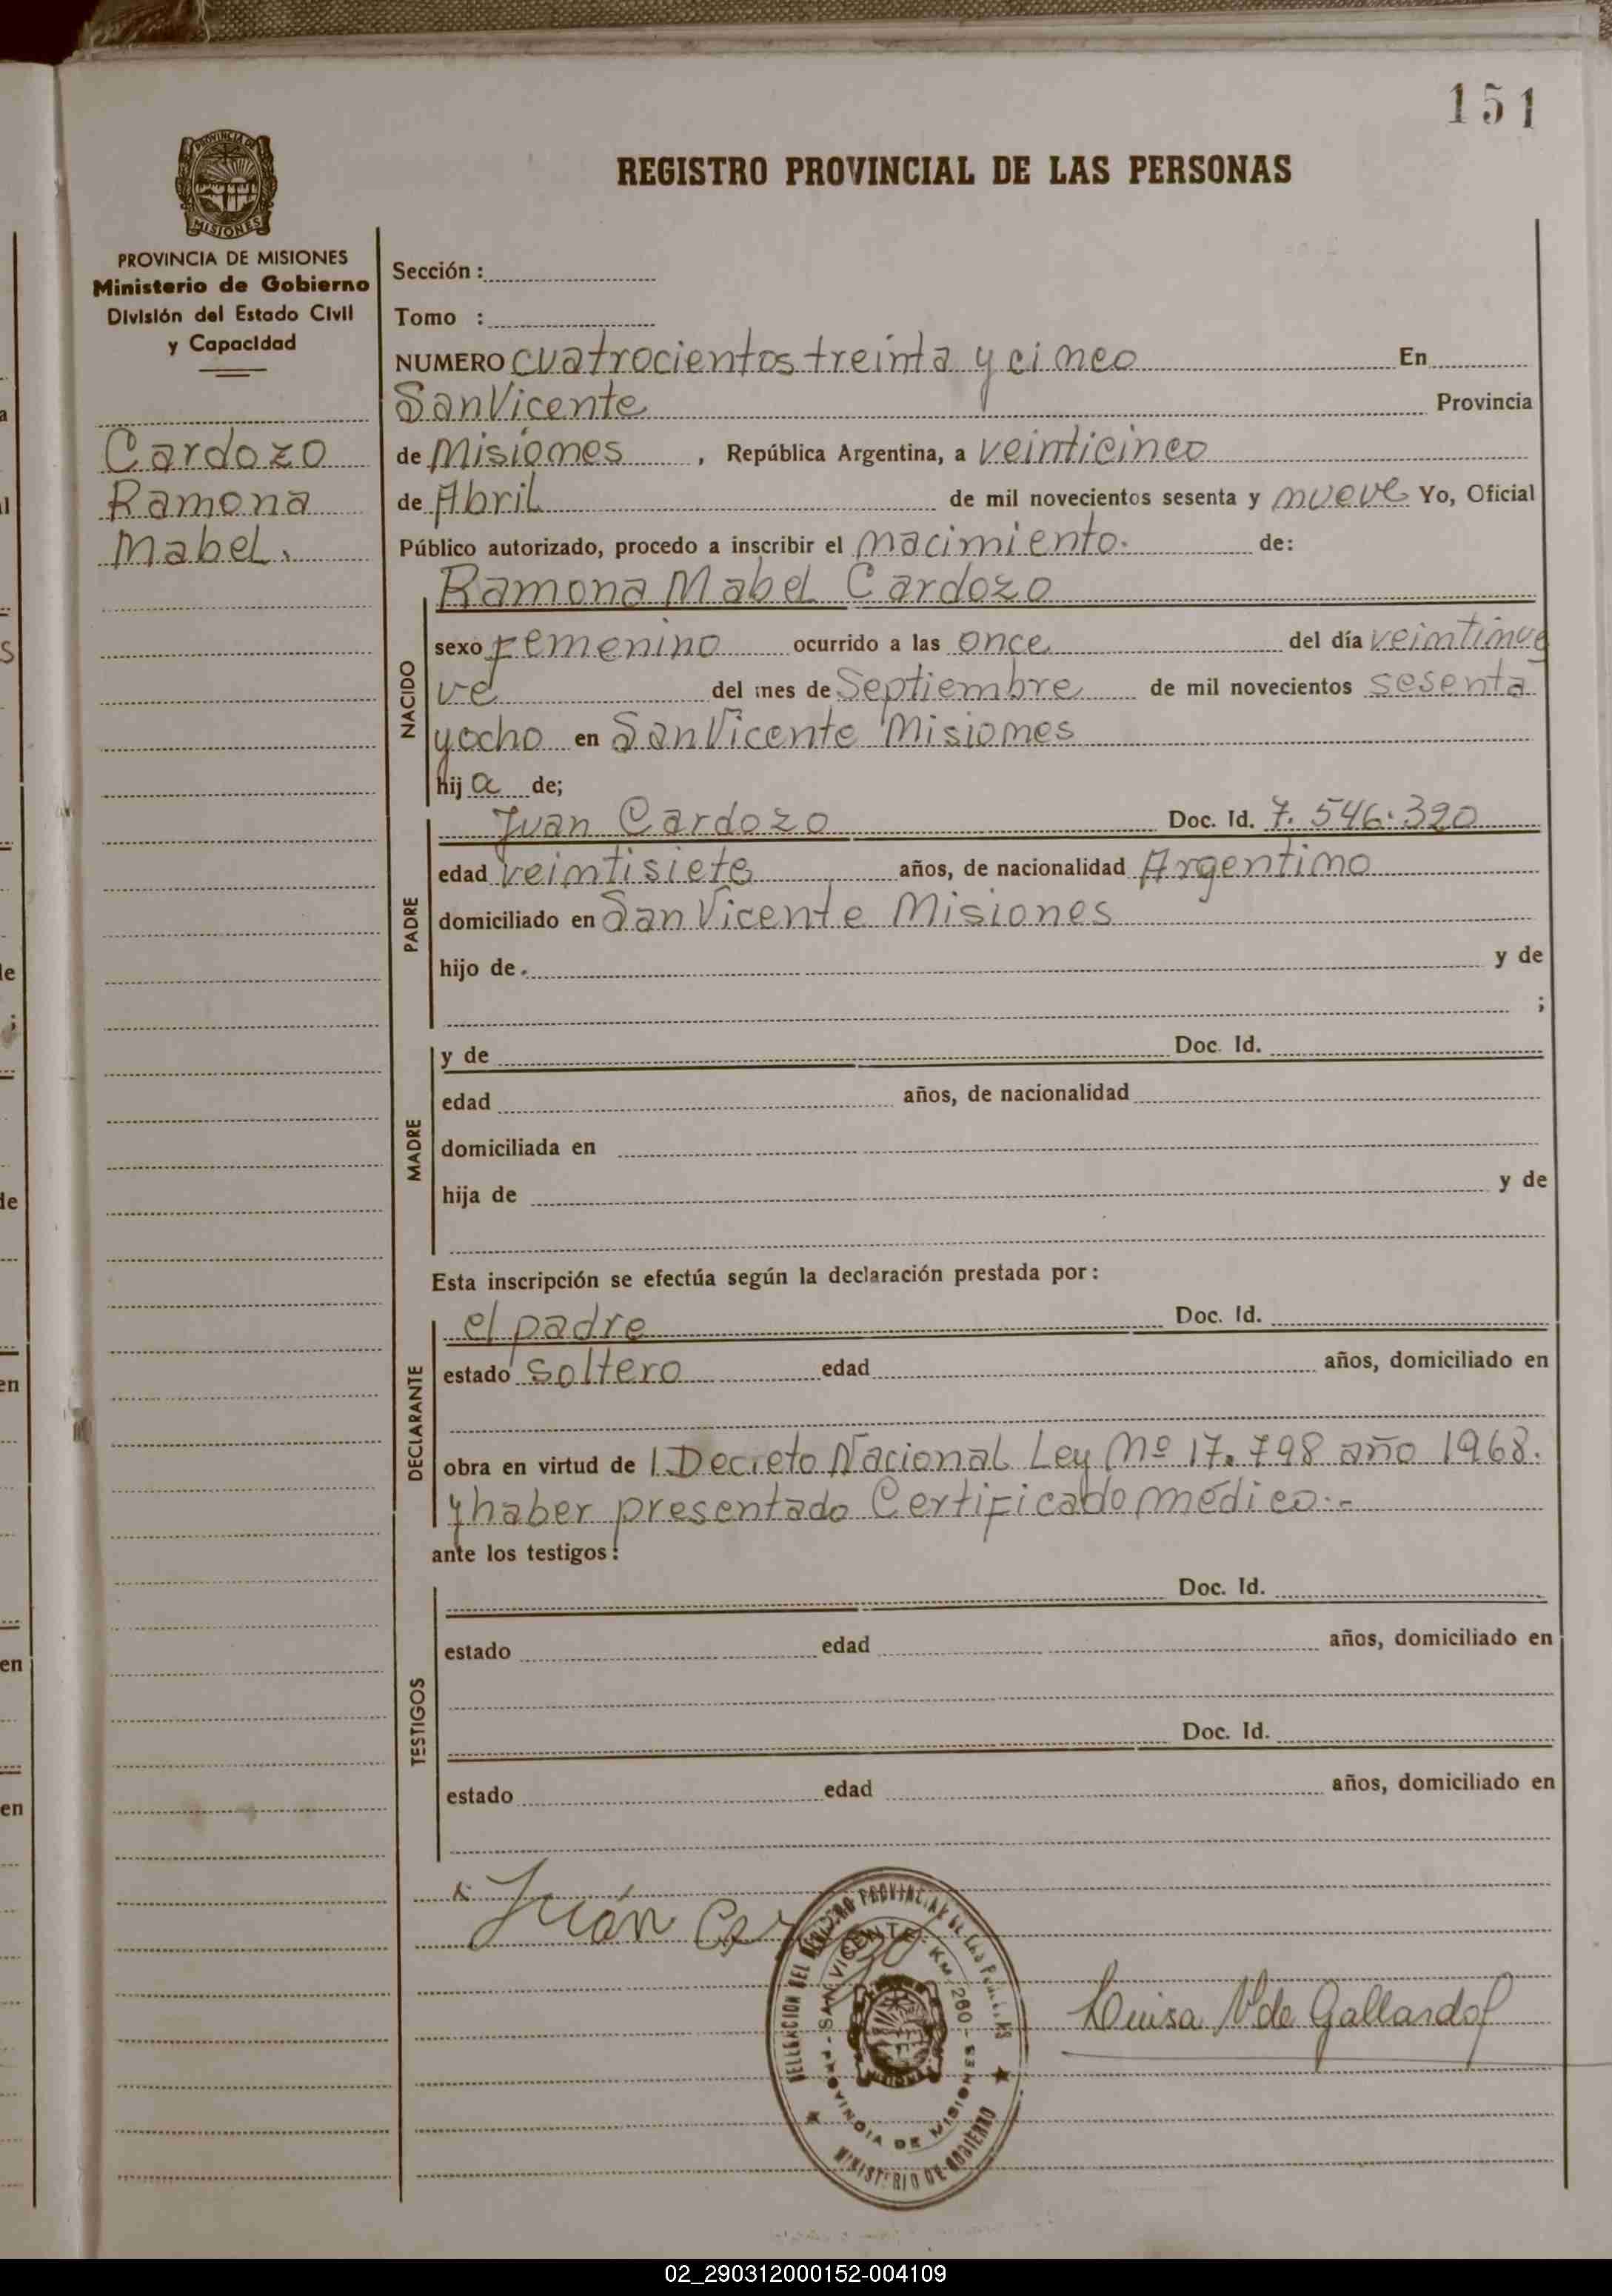 151
PROVINCIA DE
MISIONES
REGISTRO PROVINCIAL DE LAS PERSONAS
PROVINCIA DE MISIONES
Ministerio de Gobierno
División del Estado Civil
y Capacidad
Cardozo
Ramona
Mabel.
Sección :
Tomo :
NUMERO cuatrocientos treinta y cinco En
San Vicente Provincia
de Misiones , República Argentina, a veinticinco
de Abril de mil novecientos sesenta y nueve Yo, Oficial
Público autorizado, procedo a inscribir el nacimiento. de:
Ramona Mabel Cardozo
NACIDO
sexo femenino ocurrido a las once del día veintinue
ve del mes de Septiembre de mil novecientos sesenta
yocho en San Vicente Misiones
hij a de;
PADRE
Juan Cardozo Doc. Id. 7.546.320
edad veintisiete años, de nacionalidad Argentino
domiciliado en San Vicente Misiones
hijo de y de
;
MADRE
y de Doc. Id.
edad años, de nacionalidad
domiciliada en
hija de y de
Esta inscripción se efectúa según la declaración prestada por :
DECLARANTE
el padre Doc. Id.
estado soltero edad años, domiciliado en
obra en virtud de l Decreto Nacional Ley Nº 17.798 año 1968.
y haber presentado Certificado médico.-
ante los testigos :
TESTIGOS
Doc. Id.
estado edad años, domiciliado en
Doc. Id.
estado edad años, domiciliado en
Juán
DELEGACION DEL REGISTRO PROVINCIAL DE LAS PERSONAS
SAN VICENTE - KM. 260 -
PROVINCIA DE MISIONES
MINISTERIO DE GOBIERNO
Luisa V. de Gallardo
02_290312000152-004109